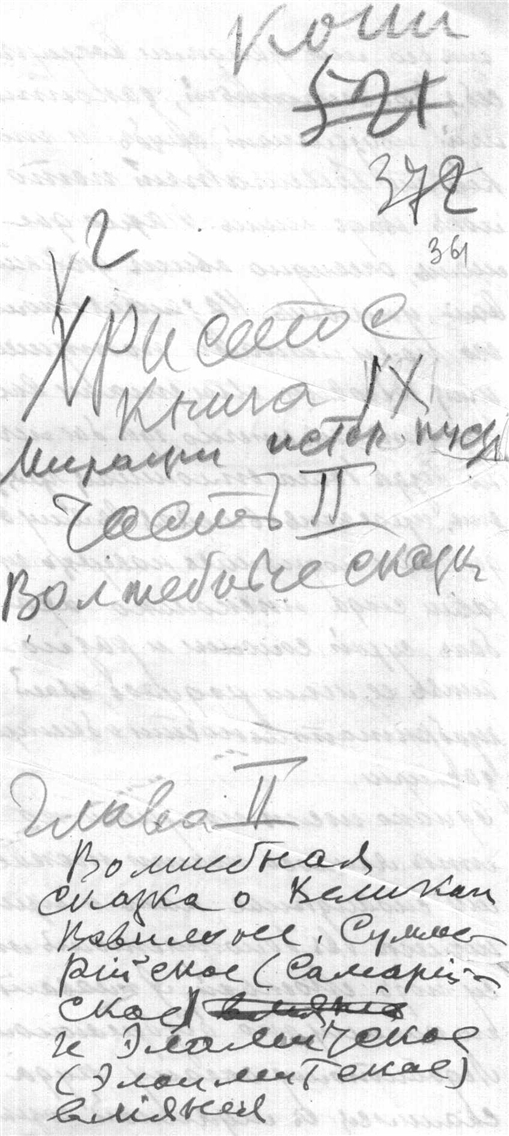 Копи
521
372
361
2
Христос
Книга IX
Миражи истор
Часть II
Волшебные сказки
Глава II
Волшебная
сказка о Великом
Вавилоне. Сумме-
рийское (Самарий-
ское) влияние
и Эламическое
(Элаимитское)
влияния